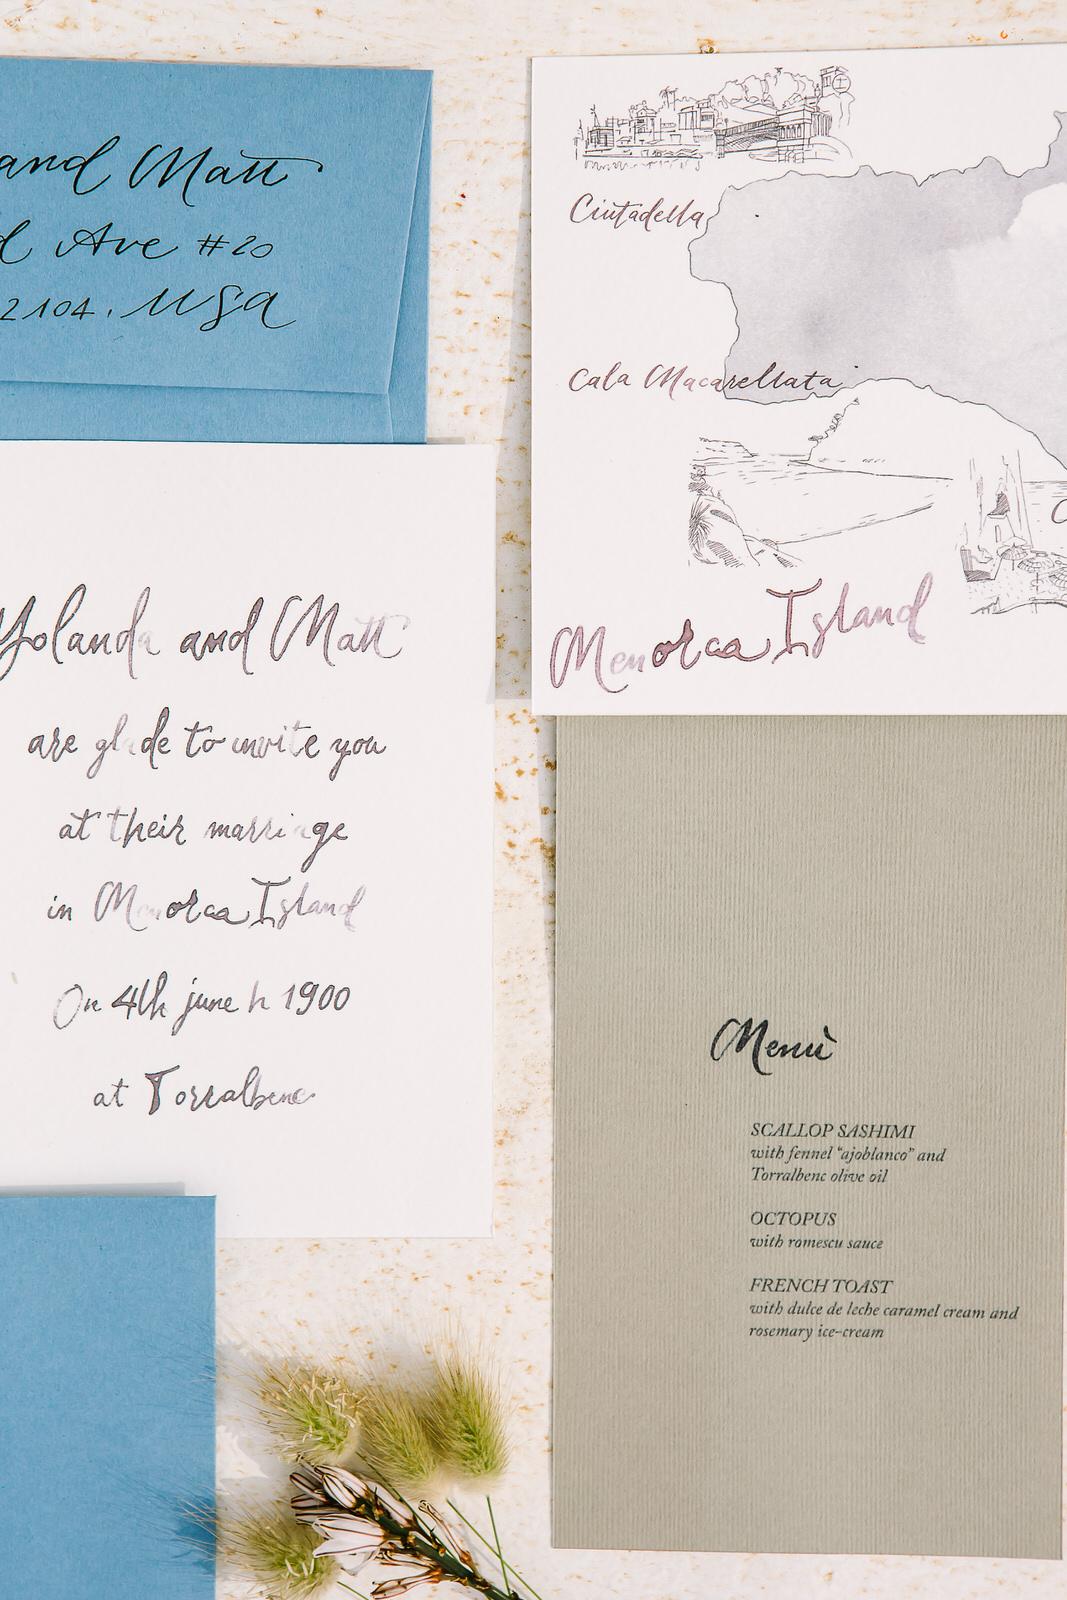 and Matt
Ave #20
2104, USA
Yolanda and Matt
are glade to invite you
at their marriage
in Menorca Island
On 4th june h 1900
at Torralbenc
Ciutadella
Cala Macarellata
Menorca Island
Menù
SCALLOP SASHIMI
with fennel "ajoblanco" and
Torralbenc olive oil
OCTOPUS
with romescu sauce
FRENCH TOAST
with dulce de leche caramel cream and
rosemary ice-cream